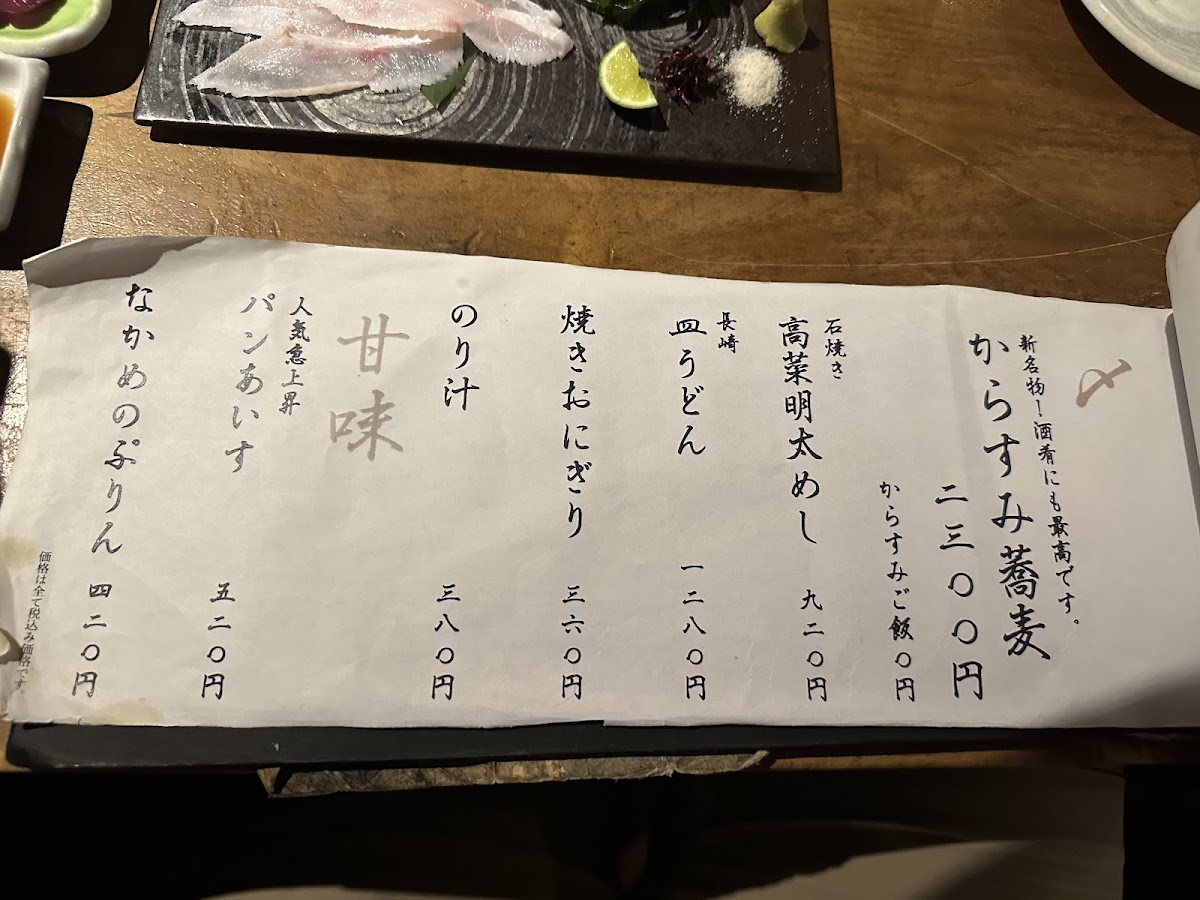 〆
新名物！酒肴にも最高です。
からすみ蕎麦
二三〇〇円
からすみご飯〇円
石焼き
高菜明太めし 九二〇円
長崎
皿うどん 一二八〇円
焼きおにぎり 三六〇円
のり汁 三八〇円
甘味
人気急上昇
パンあいす 五二〇円
なかめのぷりん 四二〇円
価格は全て税込み価格です。